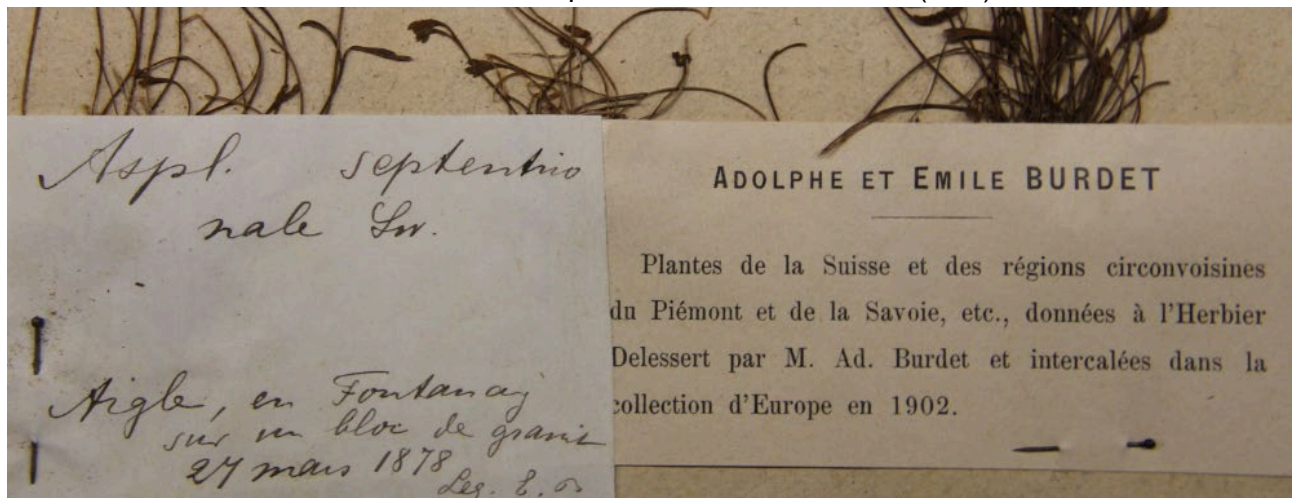 Aspl. septentrio
nale Sw.
Aigle, en Fontanay
sur un bloc de granit
27 mars 1878
Leg. E.
ADOLPHE ET EMILE BURDET
Plantes de la Suisse et des régions circonvoisines
du Piémont et de la Savoie, etc., données à l'Herbier
Delessert par M. Ad. Burdet et intercalées dans la
collection d'Europe en 1902.